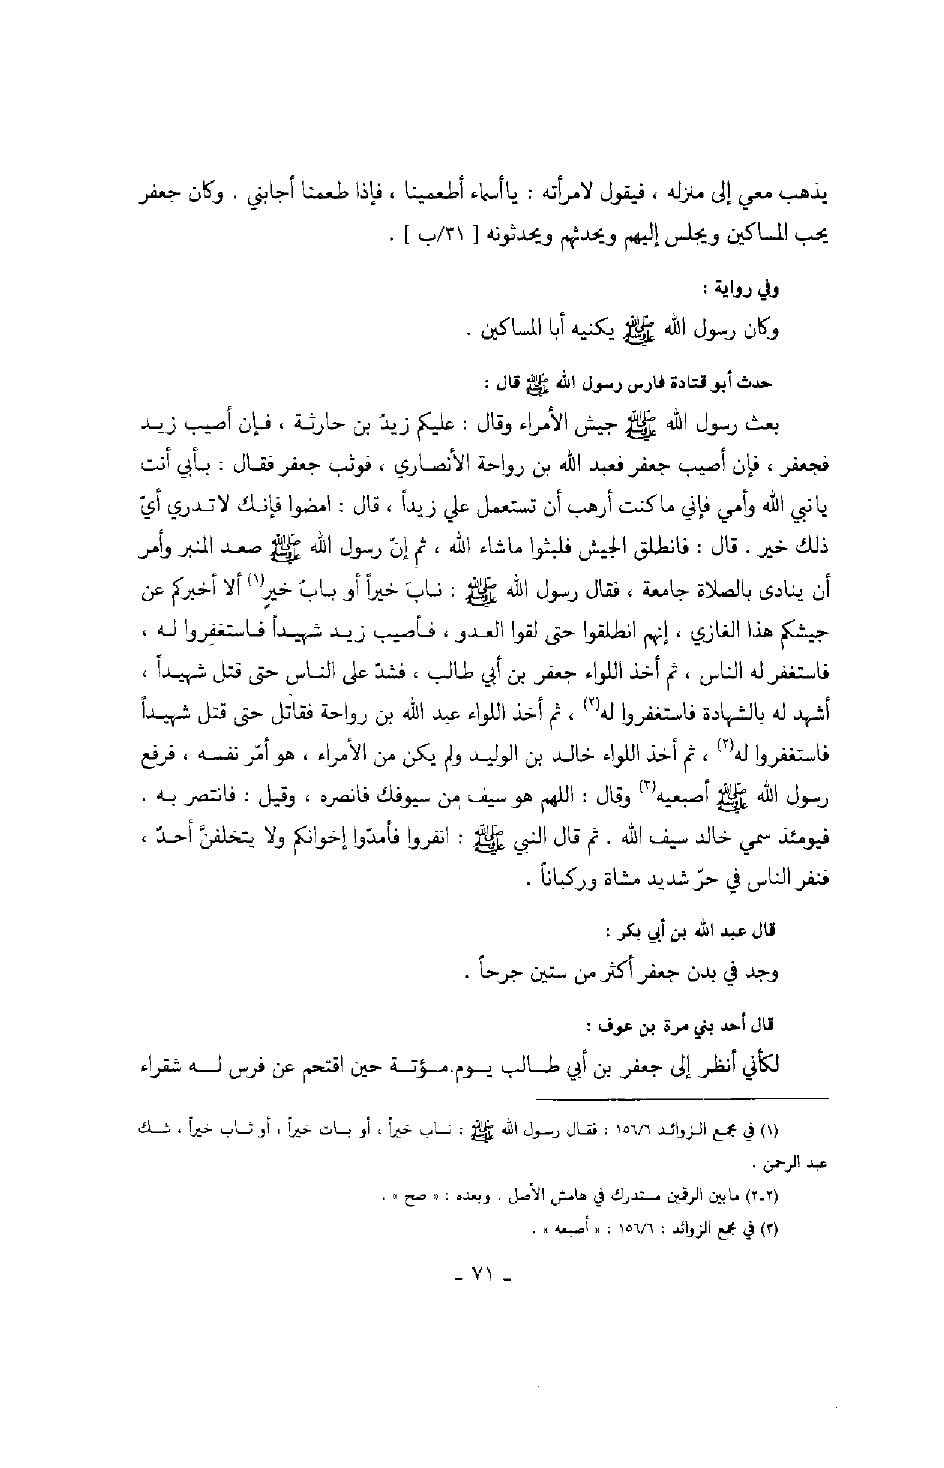 يذهب معي إلى منزله ، فيقول لامرأته : ياأسماء أطعمينا ، فإذا طعمنا أجابني . وكان جعفر
يحب المساكين ويجلس إليهم ويحدثهم ويحدثونه [ ٣١/ب ] .
وفي رواية :
وكان رسول الله ﷺ يكنيه أبا المساكين .
حدث أبو قتادة فارس رسول الله ﷺ قال :
بعث رسول الله ﷺ جيش الأمراء وقال : عليكم زيدُ بن حارثة ، فإن أصيب زيد
فجعفر ، فإن أصيب جعفر فعبد الله بن رواحة الأنصاري ، فوثب جعفر فقال : بأبي أنت
يانبي الله وأمي فإني ماكنت أرهب أن تستعمل علي زيداً ، قال : امضوا فإنك لاتدري أيّ
ذلك خير . قال : فانطلق الجيش فلبثوا ماشاء الله ، ثم إنّ رسول الله ﷺ صعد المنبر وأمر
أن ينادى بالصلاة جامعة ، فقال رسول الله ﷺ : نابَ خيراً أو بابُ خيرٍ(١) ألا أخبركم عن
جيشكم هذا الغازي ، إنهم انطلقوا حتى لقوا العدو ، فأصيب زيد شهيداً فاستغفِروا له ،
فاستغفر له الناس ، ثم أخذ اللواء جعفر بن أبي طالب ، فشدّ على الناس حتى قتل شهيداً ،
أشهد له بالشهادة فاستغفروا له(٢) ، ثم أخذ اللواء عبد الله بن رواحة فقاتل حتى قتل شهيداً
فاستغفروا له(٢) ، ثم أخذ اللواء خالد بن الوليد ولم يكن من الأمراء ، هو أمّر نفسه ، فرفع
رسول الله ﷺ أصبعيه(٣) وقال : اللهم هو سيف من سيوفك فانصره ، وقيل : فانتصر به .
فيومئذ سمي خالد سيف الله . ثم قال النبي ﷺ : انفروا فأمدّوا إخوانكم ولا يتخلفنَّ أحدٌ ،
فنفر الناس في حرّ شديد مشاة وركباناً .
قال عبد الله بن أبي بكر :
وجد في بدن جعفر أكثر من ستين جرحاً .
قال أحد بني مرة بن عوف :
لكأني أنظر إلى جعفر بن أبي طالب يوم مؤتة حين اقتحم عن فرس له شقراء
(١) في مجمع الزوائد ١٥٦/٦ : فقال رسول الله ﷺ : ناب خيراً ، أو بات خيراً ، أو ثاب خيراً ، شك
عبد الرحمن .
(٢-٢) مابين الرقمين مستدرك في هامش الأصل . وبعده : « صح » .
(٣) في مجمع الزوائد : ١٥٦/٦ : « أصبعه » .
- ٧١ -